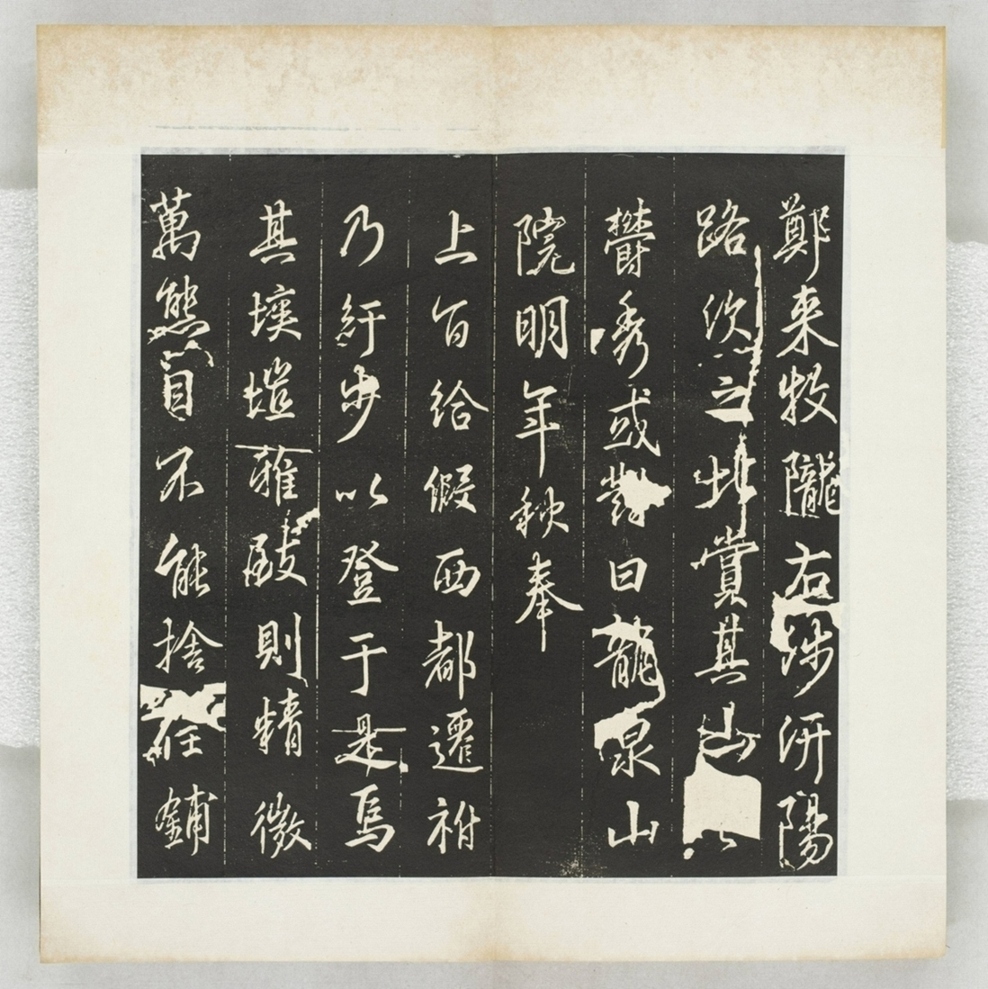 鄭来牧隴右涉汧陽
路次之此賞其山
欝秀或對曰龍泉山
院明年秋奉
上旨給假西都遷祔
乃紆步以登于是焉
其壖塏雅殿則精微
萬態目不能捨在鋪